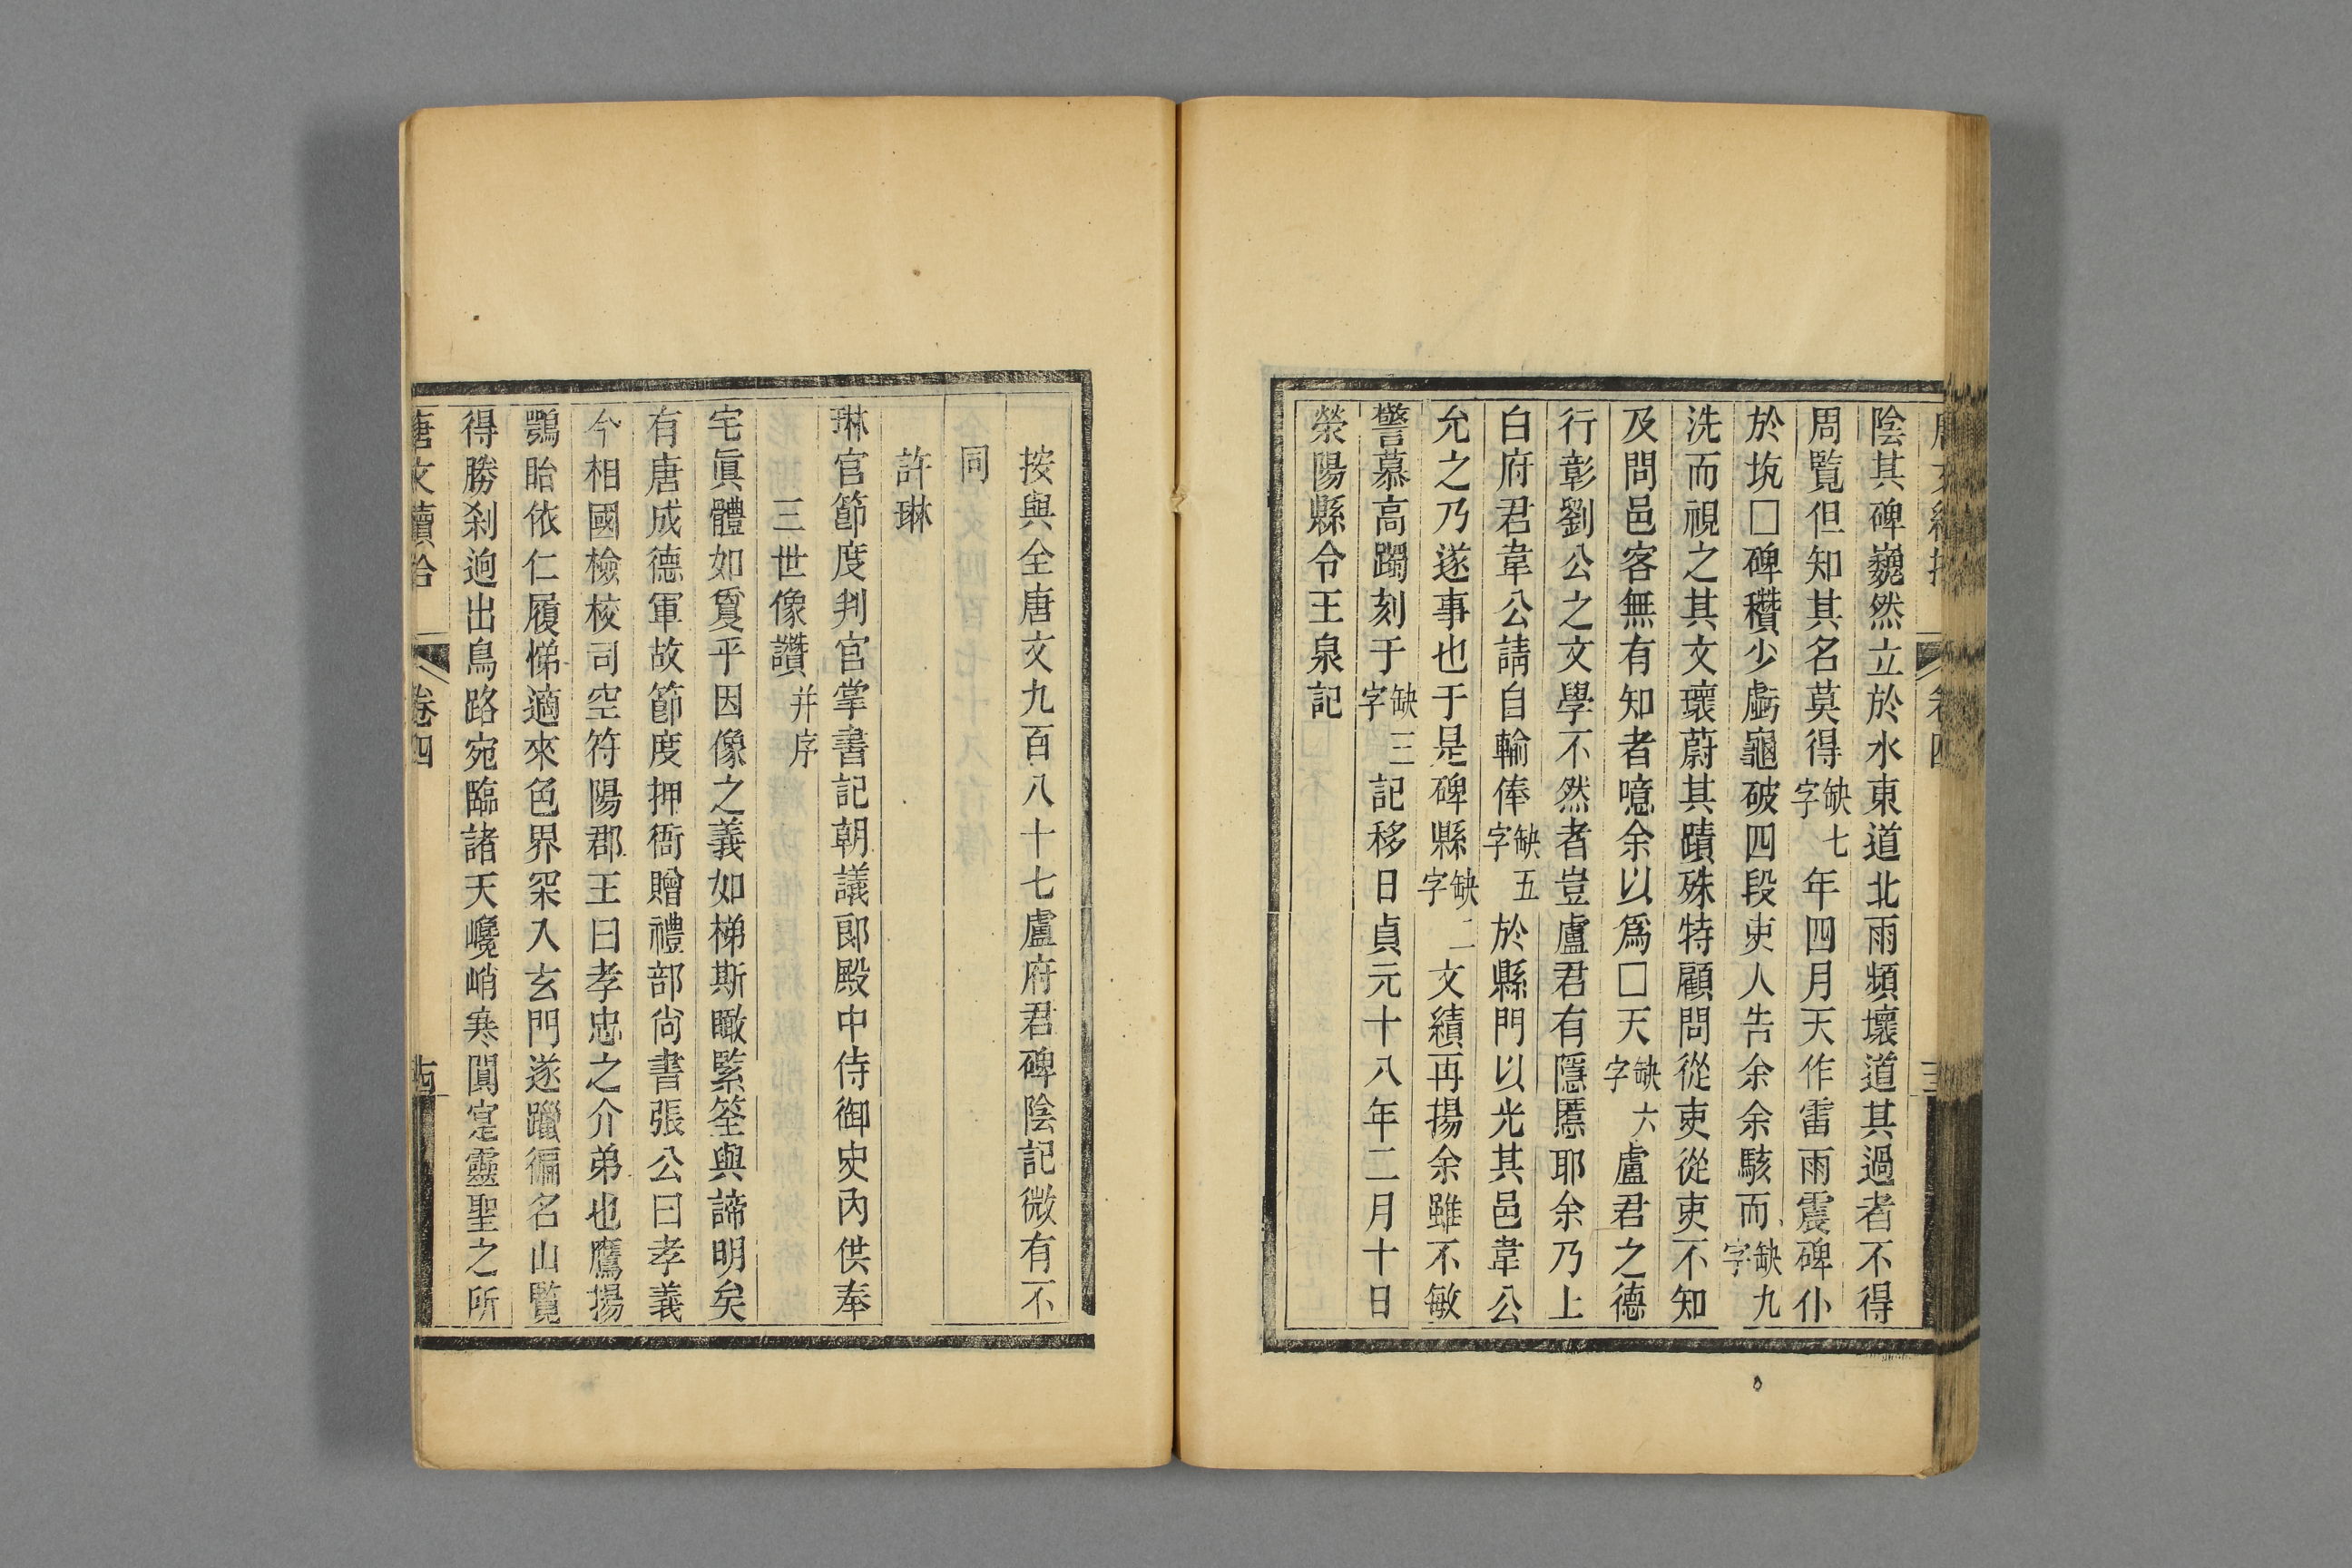 陰其碑巍然立於水東道北雨頻壞道其過者不得
周覽但知其名莫得缺七字年四月天作雷雨震碑仆
於坑□碑積少虧龜破四段吏人告余余駭而缺九字
洗而視之其文瓌蔚其蹟殊特顧問從吏從吏不知
及問邑客無有知者噫余以爲□天缺六字盧君之德
行彰劉公之文學不然者豈盧君有隱慝耶余乃上
白府君韋公請自輸俸缺五字於縣門以光其邑韋公
允之乃遂事也于是碑縣缺二字文績再揚余雖不敏
警慕高躅刻于缺三字記移日貞元十八年二月十日
滎陽縣令王泉記
按與全唐文九百八十七盧府君碑陰記微有不
同
許琳
琳官節度判官掌書記朝議郎殿中侍御史內供奉
三世像讚并序
宅眞體如敻平因像之義如梯斯瞰緊筌與諦明矣
有唐成德軍故節度押衙贈禮部尙書張公曰孝義
今相國檢校司空符陽郡王曰孝忠之介弟也鷹揚
鶚眙依仁履悌適來色界罙入玄門遂躐徧名山覽
得勝剎迥出鳥路宛臨諸天巉峭寒闃寔靈聖之所
唐文續拾 卷四